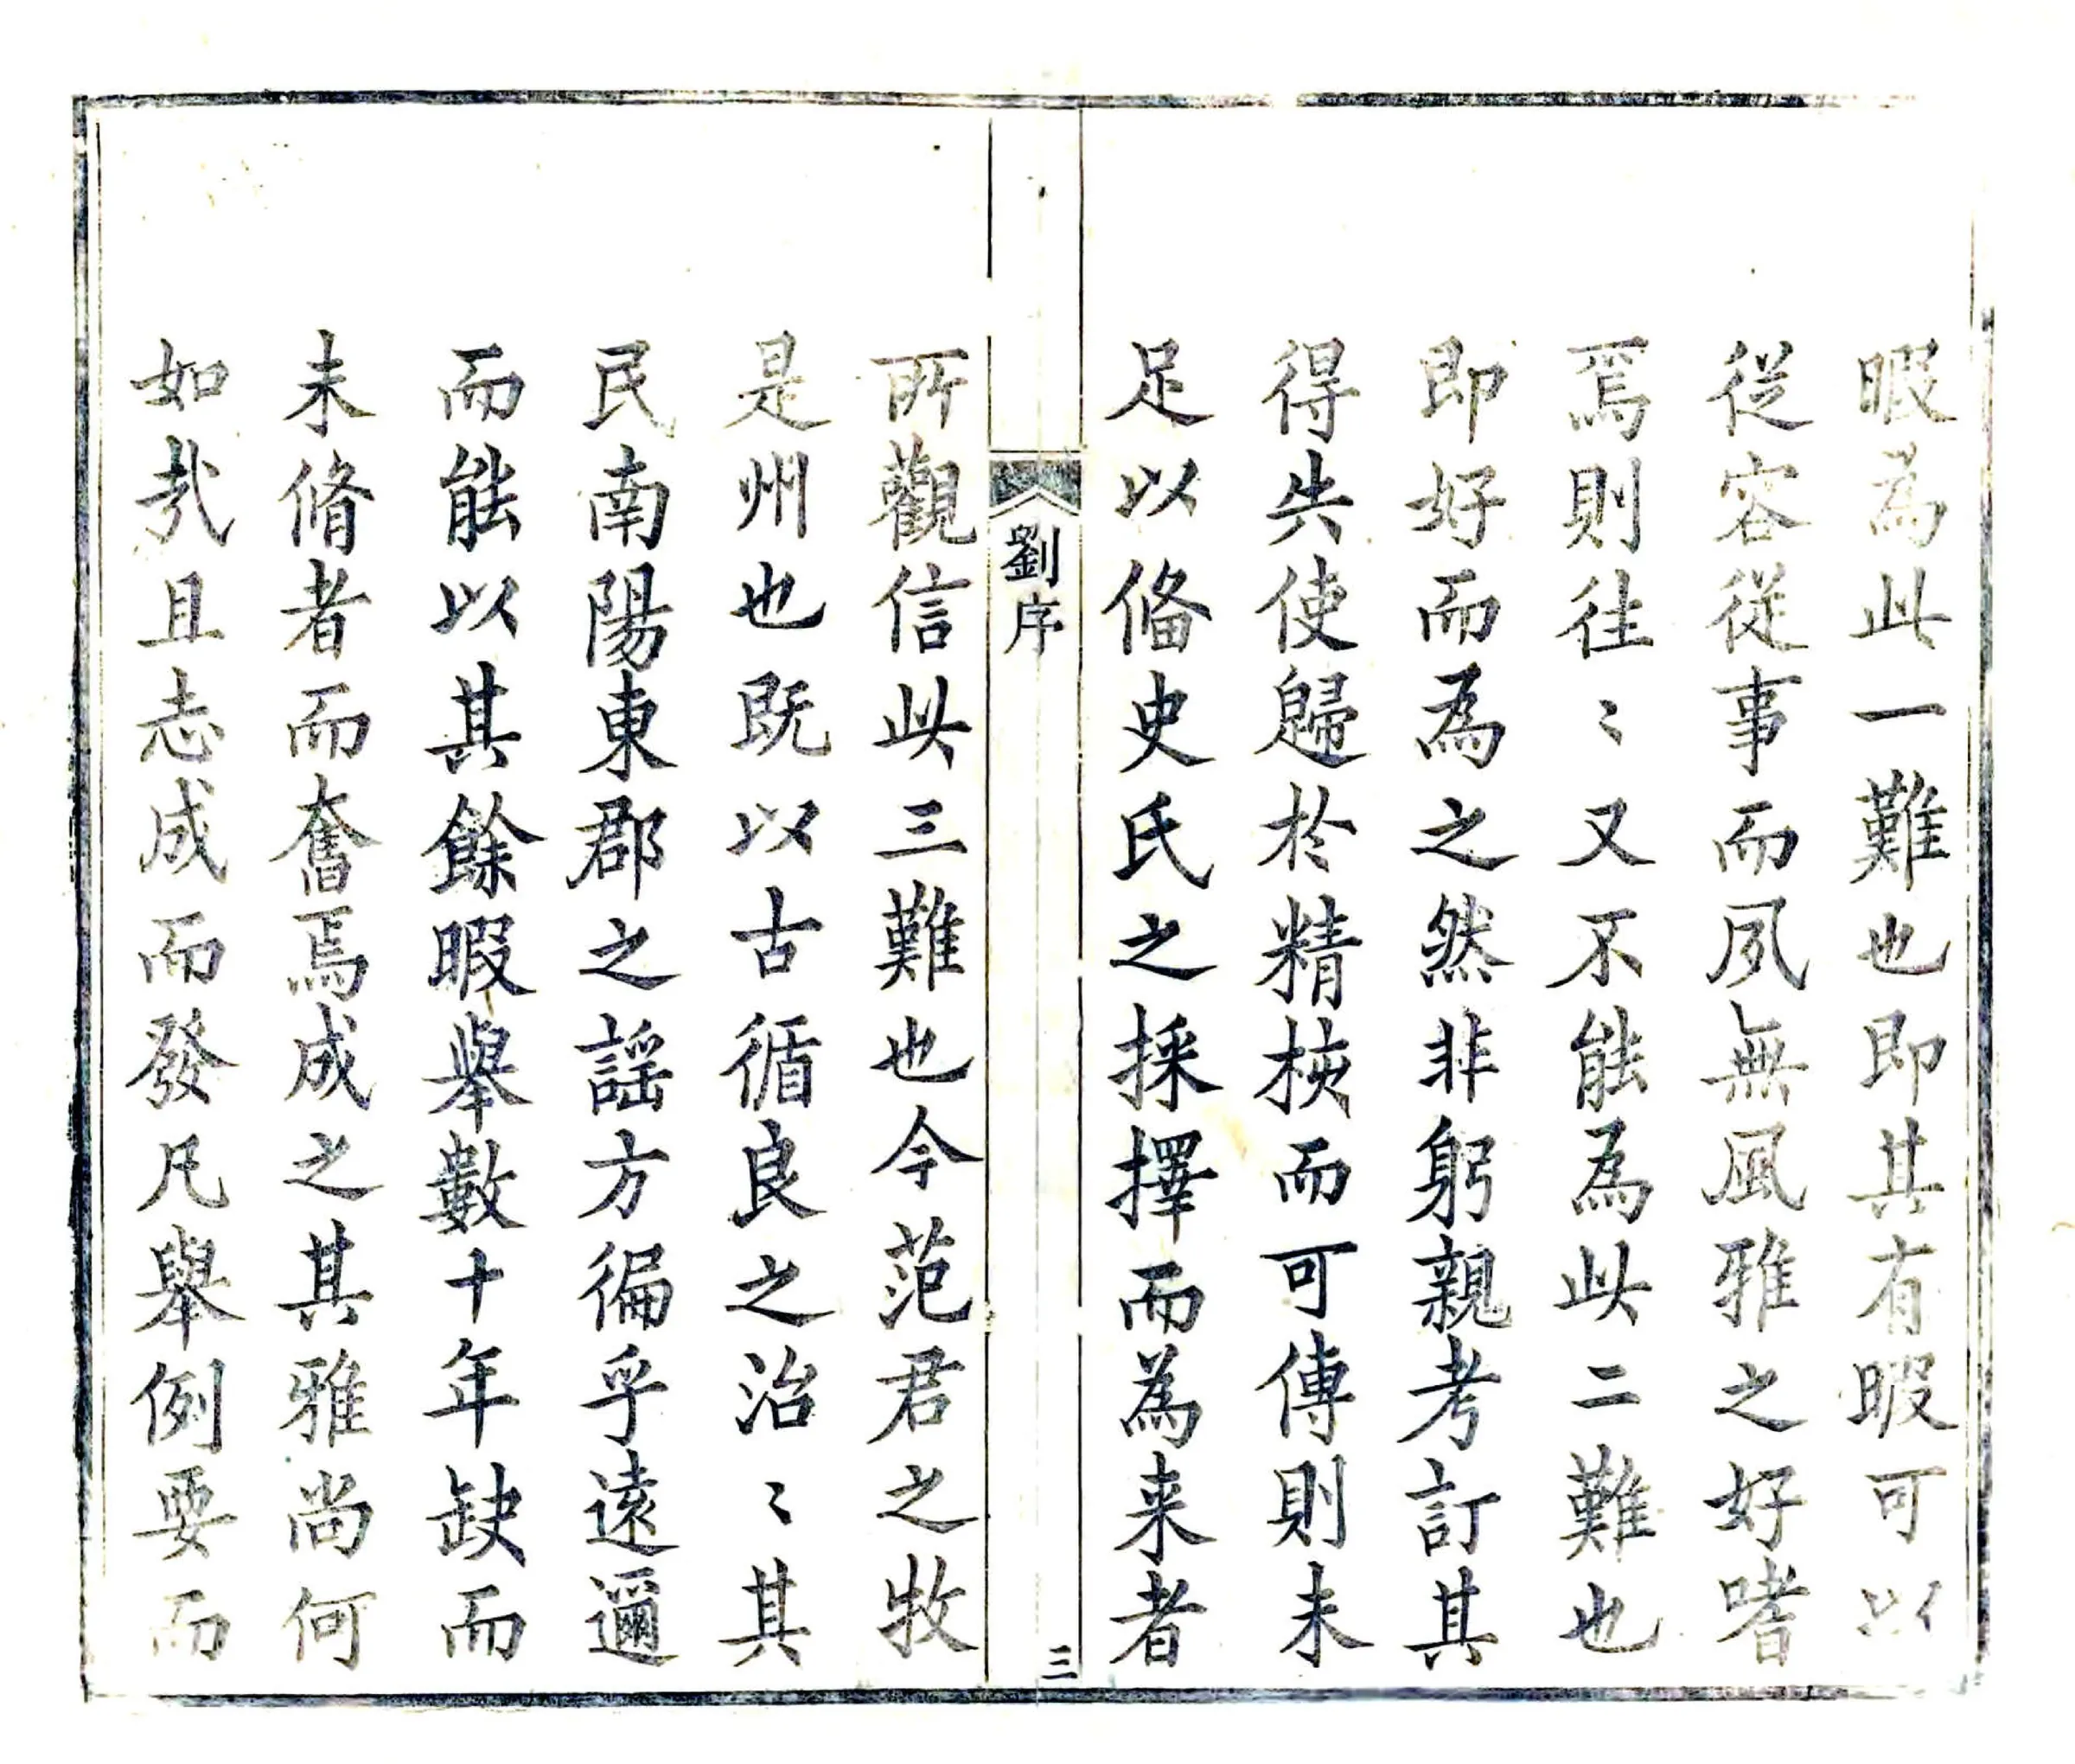 暇為此一難也即其有暇可以
從容從事而夙無風雅之好嗜
焉則往〻又不能為此二難也
即好而為之然非躬親考訂其
得失使歸於精核而可傳則未
足以俻史氏之採擇而為来者
劉序
三
所觀信此三難也今范君之牧
是州也既以古循良之治〻其
民南陽東郡之謡方徧乎遠邇
而能以其餘暇舉數十年缺而
未脩者而奮焉成之其雅尚何
如㢤且志成而發凡舉例要而